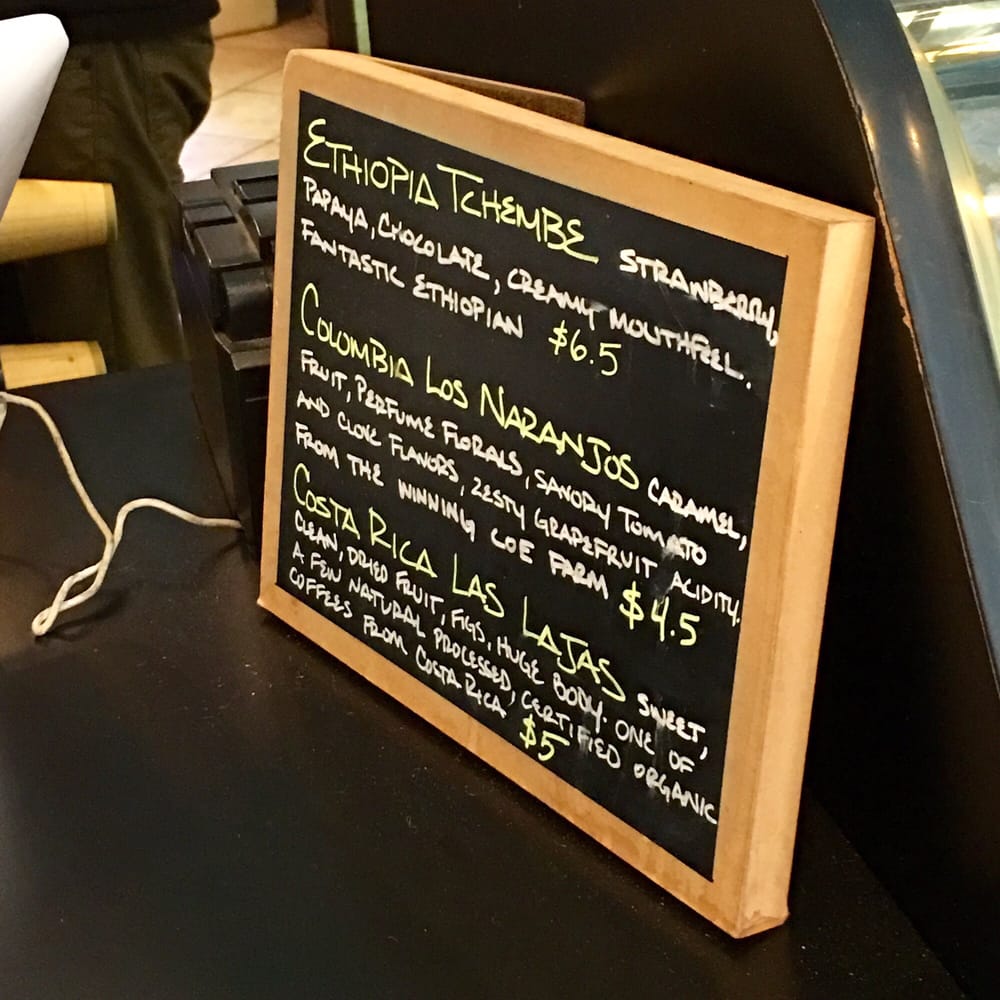 ETHIOPIA TCHEMBE STRAWBERRY,
PAPAYA, CHOCOLATE, CREAMY MOUTHFEEL.
FANTASTIC ETHIOPIAN $6.5
COLOMBIA LOS NARANJOS CARAMEL,
FRUIT, PERFUME FLORALS, SAVORY TOMATO
AND CLOVE FLAVORS, ZESTY GRAPEFRUIT ACIDITY.
FROM THE WINNING COE FARM $4.5
COSTA RICA LAS LAJAS SWEET,
CLEAN, DRIED FRUIT, FIGS, HUGE BODY. ONE OF
A FEW NATURAL PROCESSED, CERTIFIED ORGANIC
COFFEES FROM COSTA RICA $5